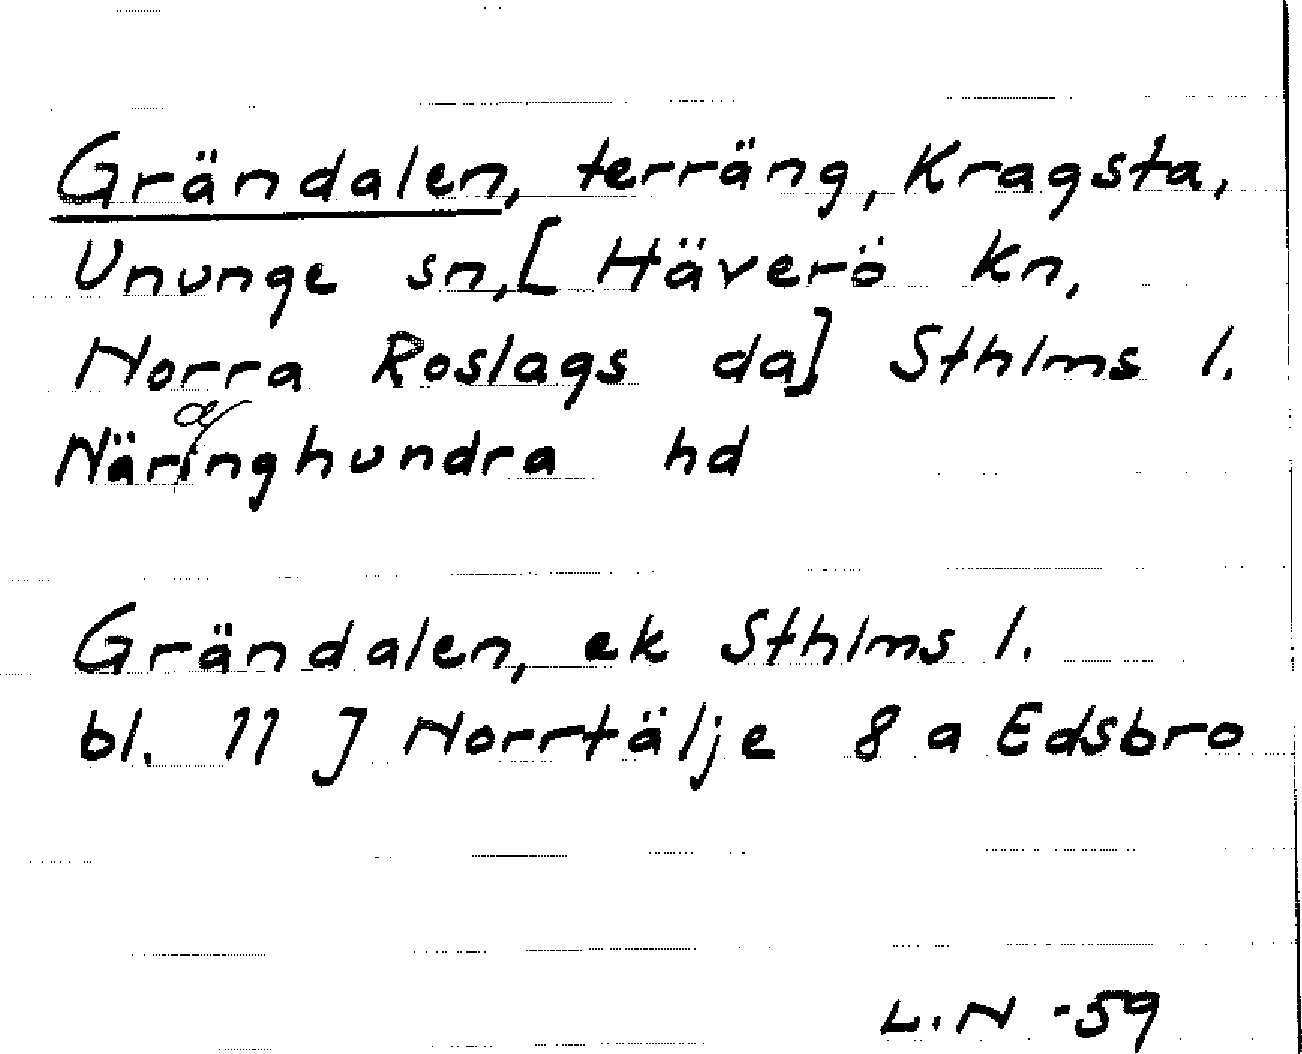 Grändalen, terräng, Kragsta,
Ununge sn, [Häverö kn,
Norra Roslags da] Sthlms l.
Näringhundra hd
Grändalen, ek Sthlms l.
bl. 11 J Norrtälje 8 a Edsbro
L.N -59